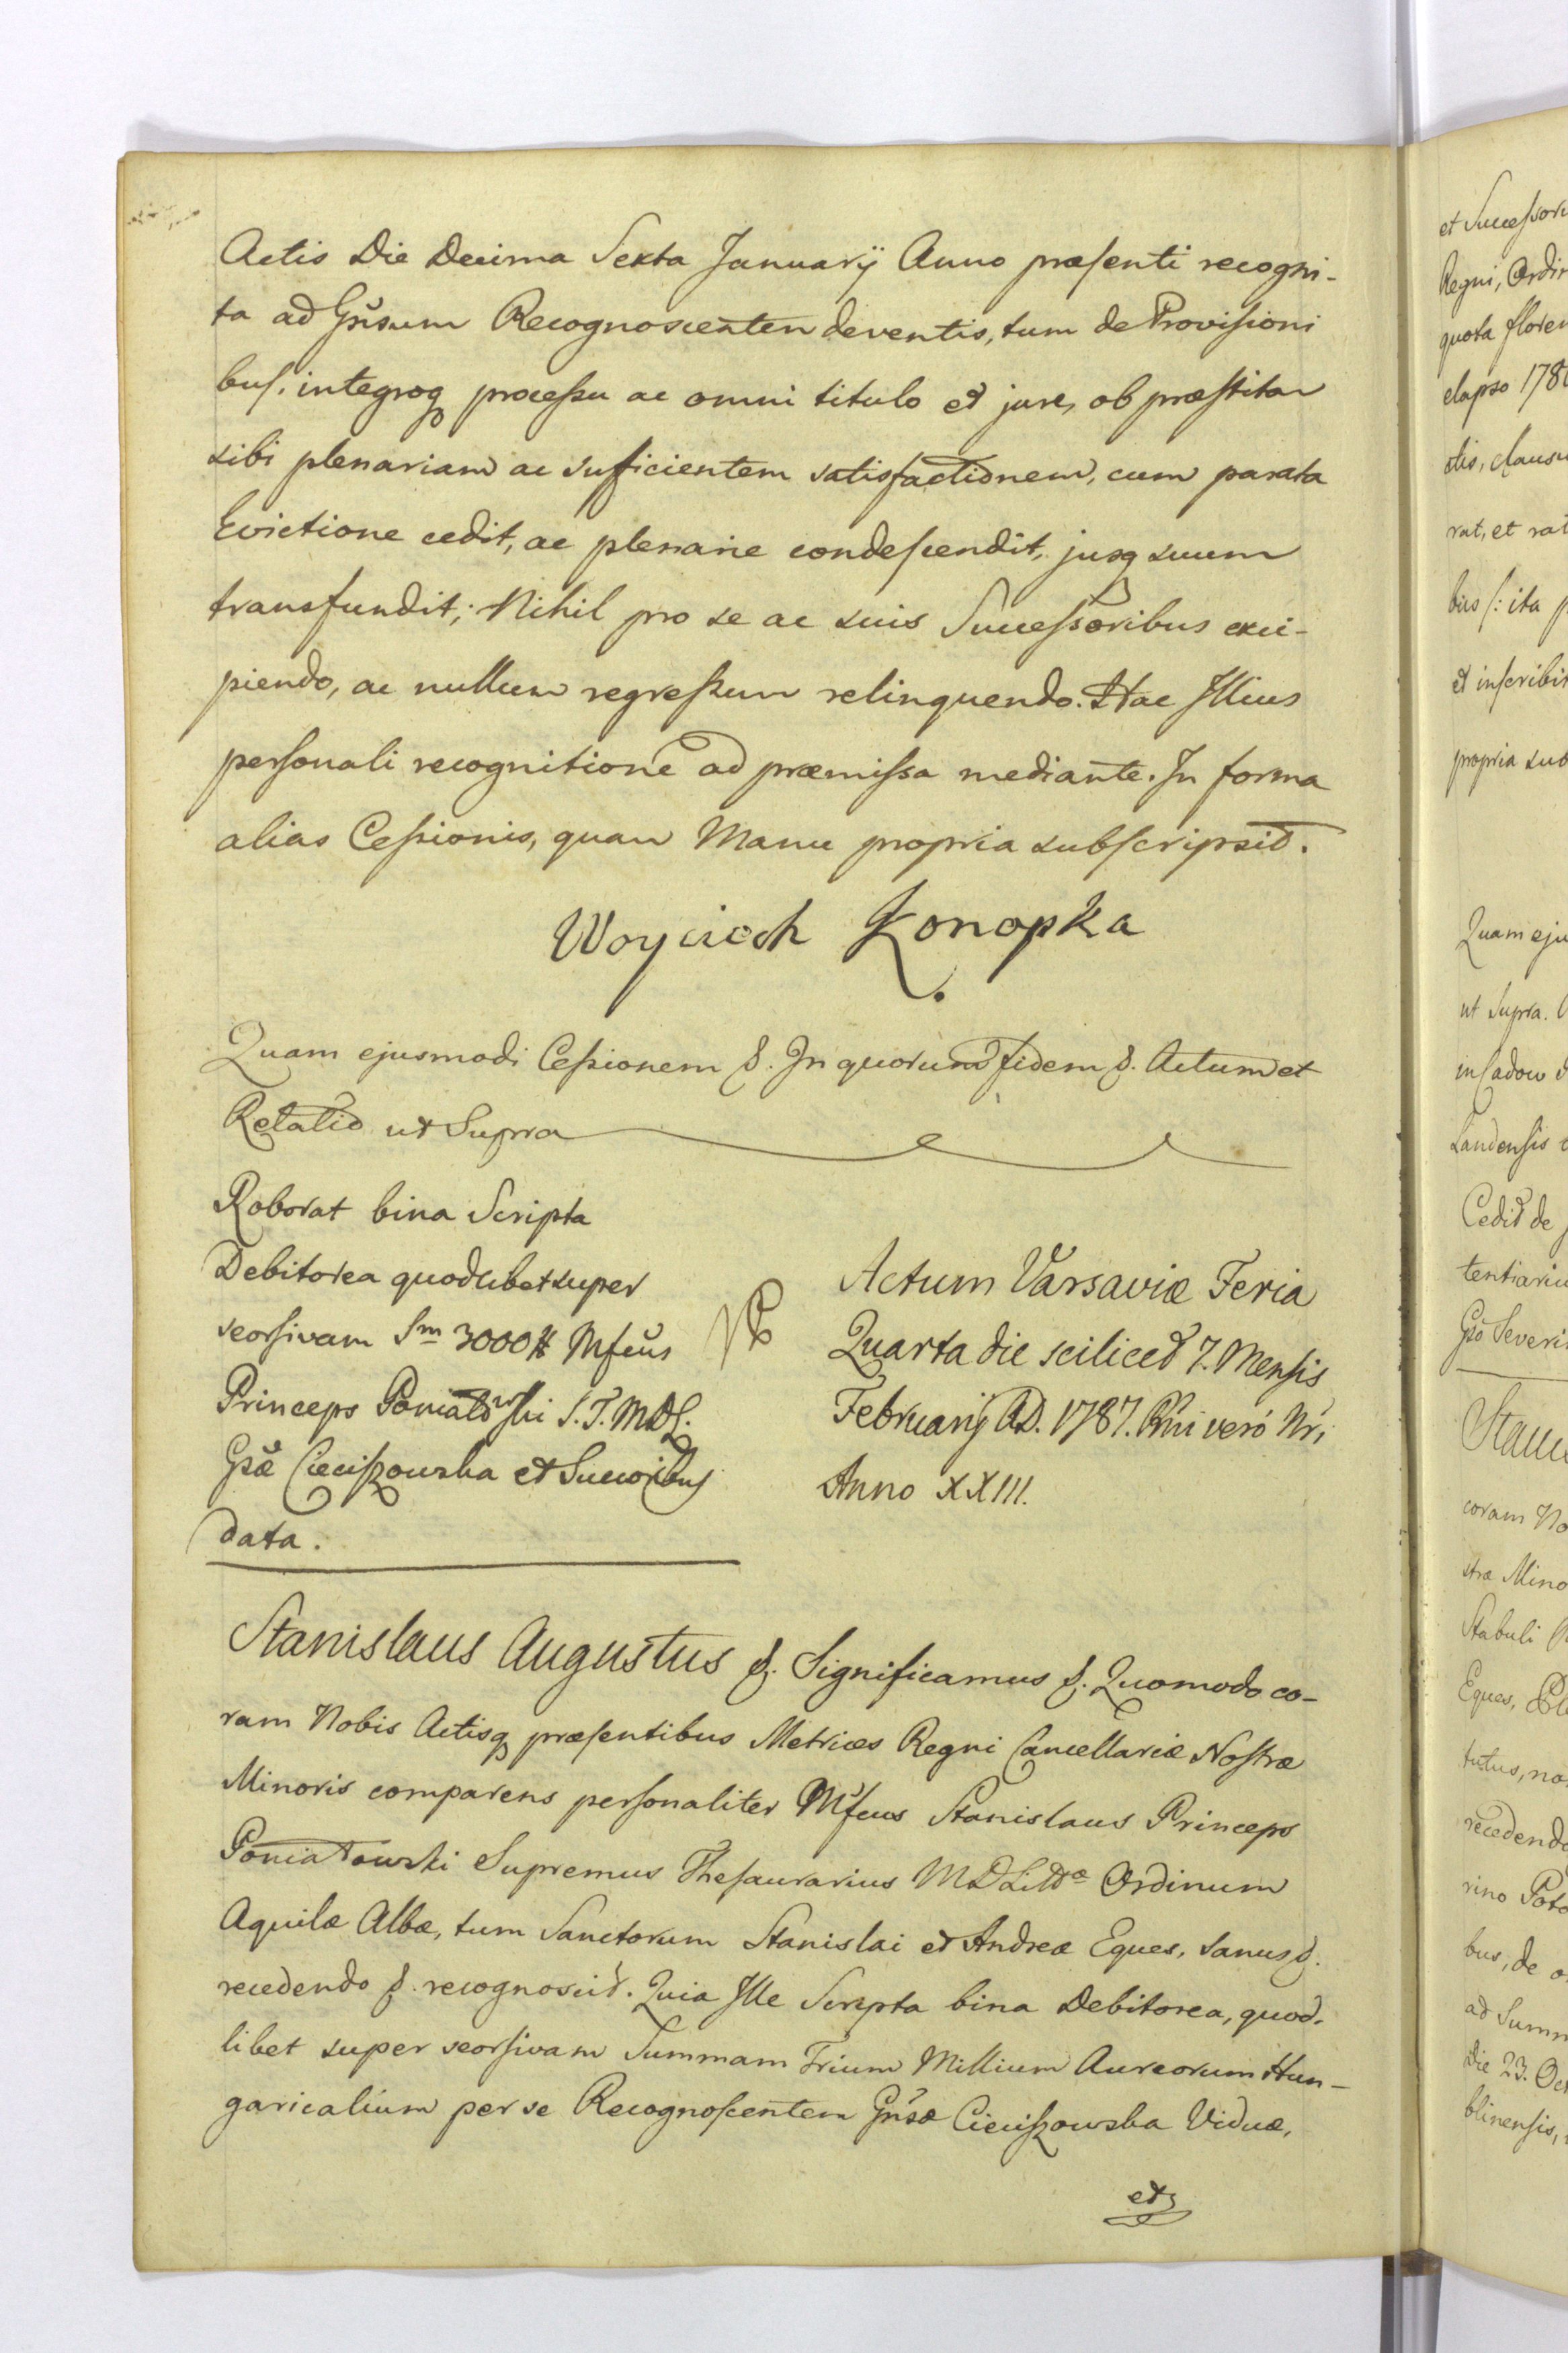 Actis Die Decima Sexta Januarij Anno præsenti recogni-
ta ad Gnsum Recognoscenten deventis, tum de Provisioni
bus. integroq processu ac omni titulo et jure, ob præstitan
sibi plenariam ac sufficientem satisfactionem, cum parata
Evictione cedit, ac plenarie condescendit, jusq suum
transfundit; Nihil pro se ac suis Successoribus exci-
piendo, ac nullum regressum relinquendo. Hac Illius
personali recognitione ad præmissa mediante. In forma
alias Cessionis, quam Manu propria subscripsit.
Woyciech Konopka
Quam ejusmodi Cessionem &. In quorum fidem &. Actum et
Relatio ut Supra
Roborat bina Scripta
Debitorea quodlibet super
seorsivam Sm 3000 # Mfcus
Princeps Poniatowski S.T.MDL.
Gsæ Cieciszowska et Succoribus
data.
Actum Varsaviæ Feria
Quarta die scilicet 7. Mensis
Februarij AD. 1787. Rni vero Nri
Anno XXIII.
Stanislaus Augustus &. Significamus &. Quomodo co-
ram Nobis Actisq præsentibus Metrices Regni Cancellariæ Nostræ
Minoris comparens personaliter Mfcus Stanislaus Princeps
Poniatowski Supremus Thesaurarius MDLittæ Ordinum
Aquilæ Albæ, tum Sanctorum Stanislai et Andreæ Eques, sanus &.
recedendo &. recognoscit. Quia Ille Scripta bina Debitorea, quod-
libet super seorsivam Summam Trium Millium Aureorum Hun-
garicalium per se Recognoscentem Gnsæ Cieciszowska Viduæ,
et
et Successor
Regni, Ordin
quota floren
elapso 178
rat, et rat
bus /: ita p
et inscribit
propria sub
Quam eju
ut Supra.
Landensis
Cedit de
tentiariu
Gso Severi
Stanis
coram No
stræ Mino
Stabuli
Eques,
recedendo
rino Poto
bus, de o
ad Summ
die 23. Oct
blinensis,